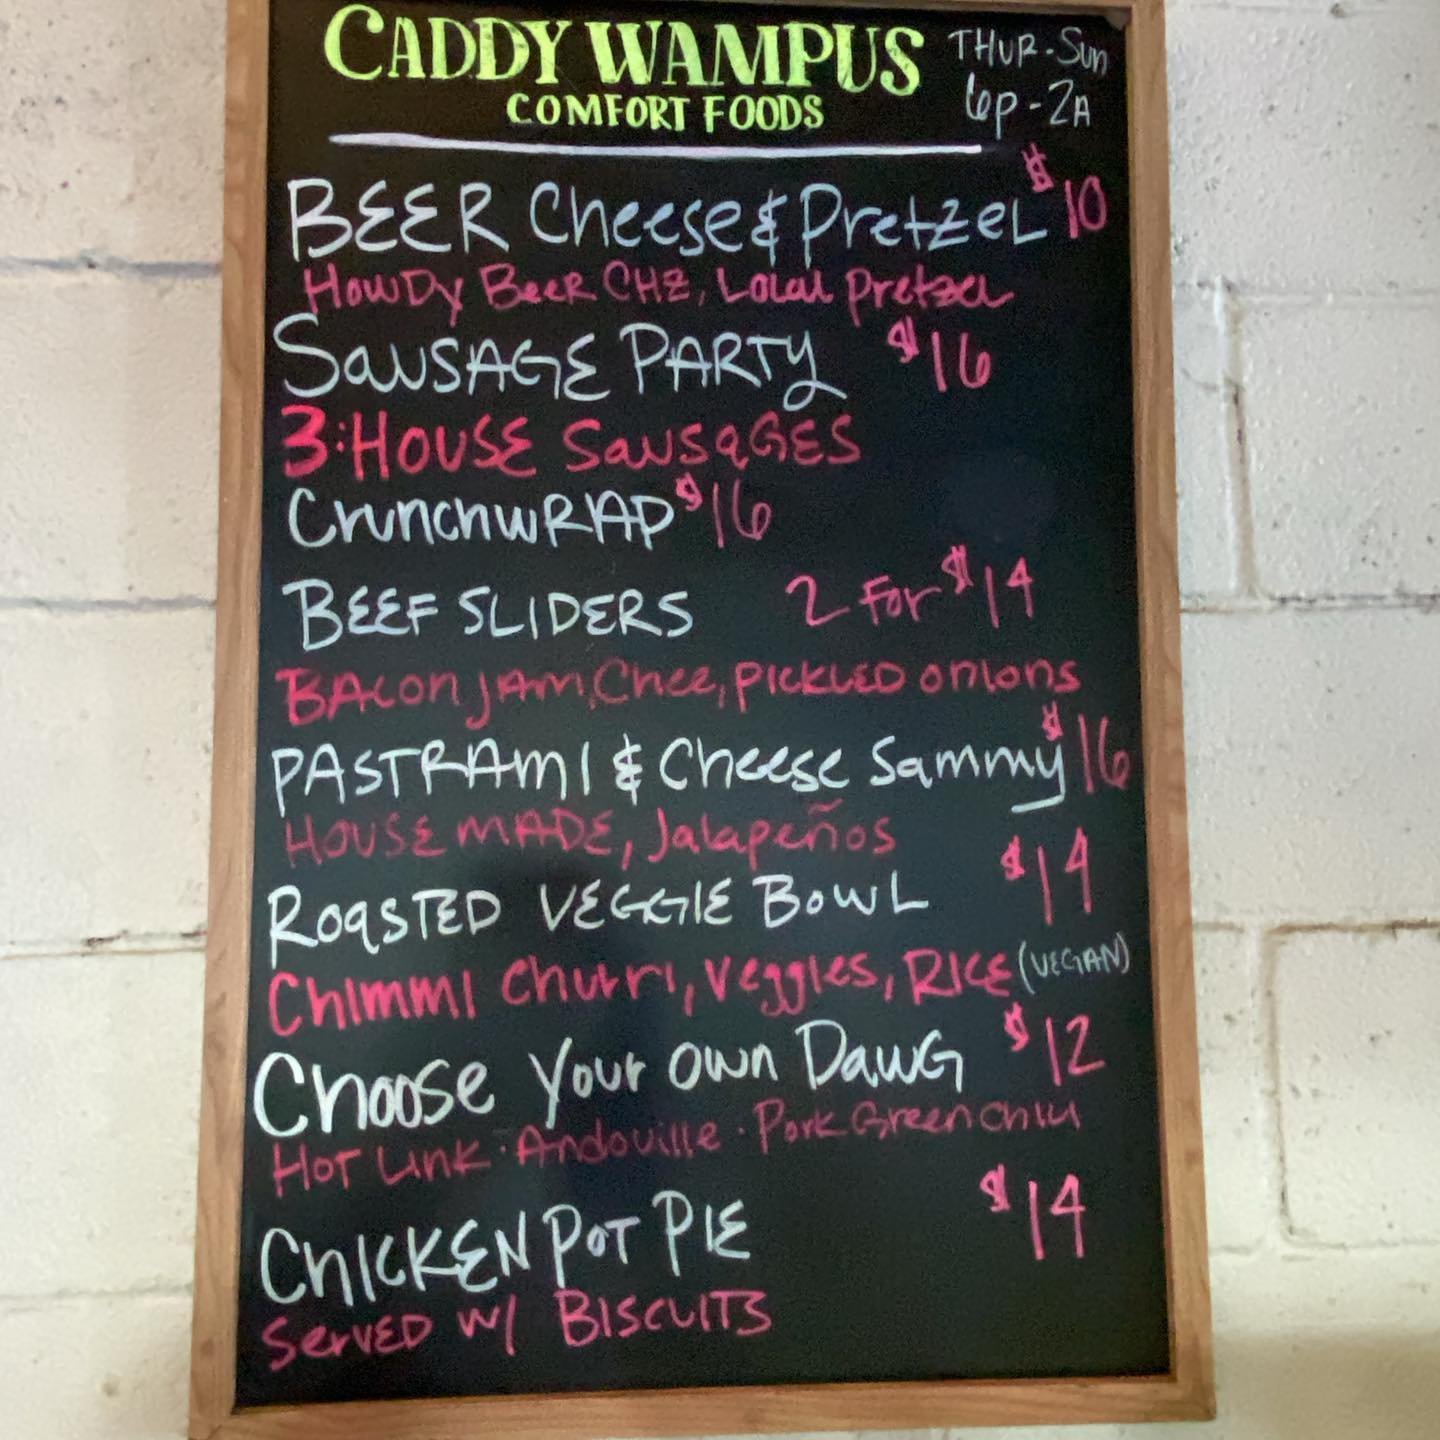 CADDY WAMPUS
COMFORT FOODS
THUR-Sun
6p-2A
BEER Cheese & Pretzel $10
Howdy Beer CHZ, Local Pretzel
Sausage Party $16
3:House Sausages
Crunchwrap $16
Beef Sliders 2 For $14
Bacon Jam, Chee, Pickled onions
Pastrami & Cheese Sammy $16
House made, Jalapeños
Roasted Veggie Bowl $14
Chimmi Churri, Veggies, Rice (VEGAN)
Choose Your Own Dawg $12
Hot Link · Andouille · Pork Green Chili
Chicken Pot Pie $14
Served w/ Biscuits